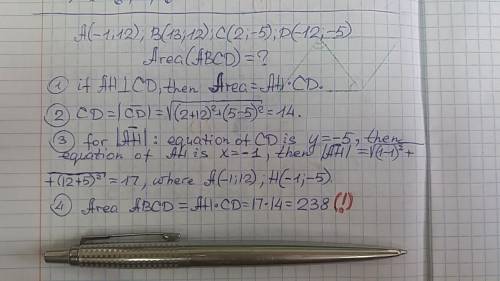 A(-1,12); B(13,12); C(2,-5); D(-12,-5)
Area(ABCD)=?
① if AH⊥CD, then Area=AH·CD.
② CD=|CD|=√((2+12)²+(5-5)²)=14.
③ for |AH|: equation of CD is y=-5, then
equation of AH is x=-1, then |AH|=√((1-1)²+
+(12+5)²)=17, where A(-1;12), H(-1;-5)
④ Area ABCD=AH·CD=17·14=238(!)